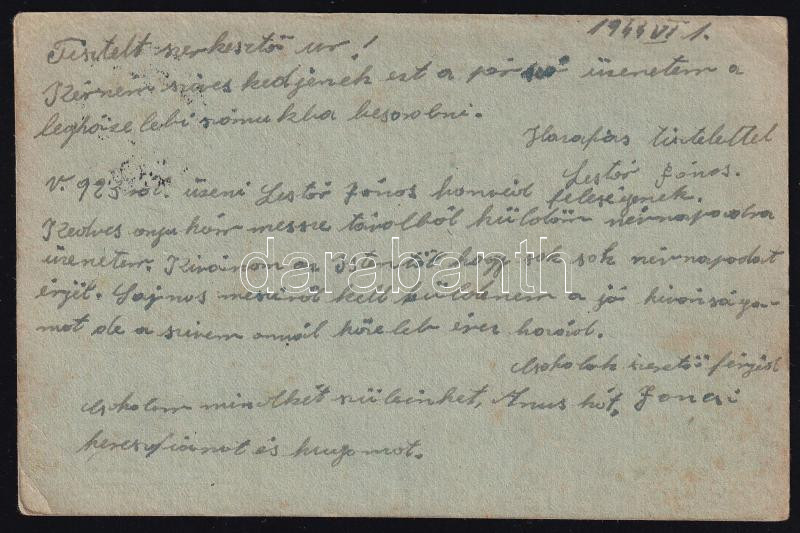 1944 VI 1.
Tisztelt szerkesztő ur!
Kérném szives kedjenek ezt a pár szó üzenetem a
leghözelebi számukba besorolni.
Hazafias tisztelettel
Sestör János.
V. 923 ról. üzeni Sestör János honvéd feleségének.
Kedves anyukám messze távolból küldöm névnapodra
üzenetem. Kivánom az Istentöl hogy sok sok névnapodat
érjél. Sajnos mesziröl kell küldenem a jó kivánsága-
mot de a szivem annál közeleb érez hozád.
Csokolak szeretöö férjed
Csokolom mindkét szüleinket, Anus kát, Jancsi
keresztfiamat és hugomat.
darabanth